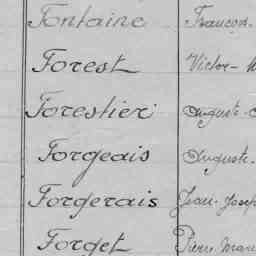 Fontaine François
Forest Victor-
Forestier Auguste-
Forgeais Auguste-
Forgerais Jean-Josep
Forget Pierre Marie